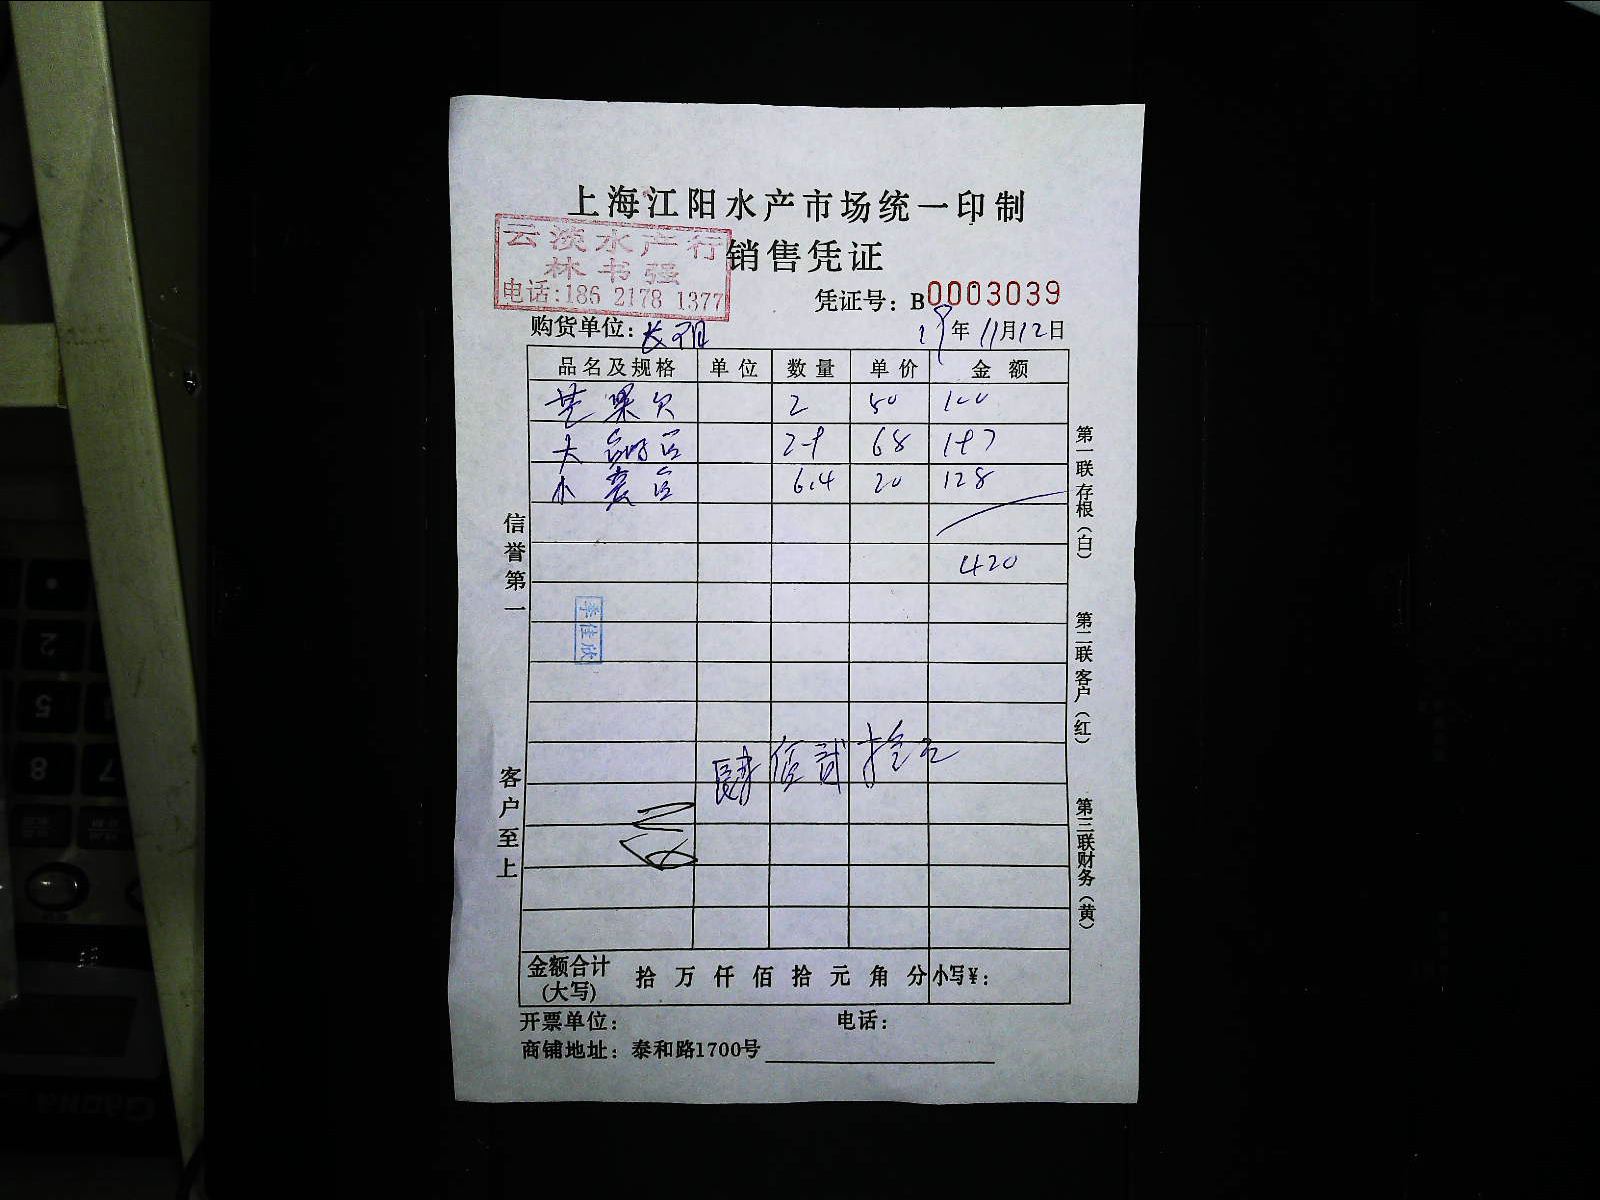 上海江阳水产市场统一印制
云淡水产行
林书强
电话:186 2178 1377
销售凭证
凭证号：B0003039
购货单位：长阳
19年11月12日
品名及规格 单位 数量 单价 金额
2 50 100
大 68
小 6.4 20 128
420
李佳欣
肆佰贰拾元
金额合计(大写) 拾 万 仟 佰 拾 元 角 分 小写¥：
开票单位： 电话：
商铺地址：泰和路1700号
信誉第一
客户至上
第一联 存根（白）
第二联 客户（红）
第三联 财务（黄）
2
5
7
8